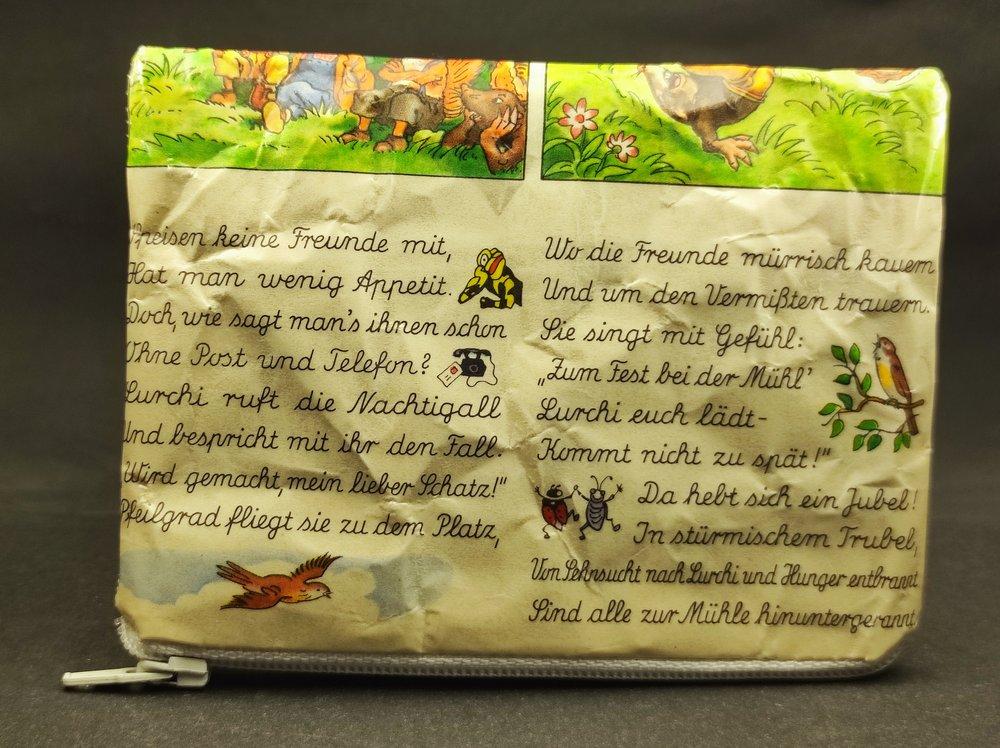 Speisen keine Freunde mit,
Hat man wenig Appetit.
Doch, wie sagt man's ihnen schon
Ohne Post und Telefon?
Lurchi ruft die Nachtigall
Und bespricht mit ihr den Fall.
Wird gemacht, mein lieber Schatz!"
Pfeilgrad fliegt sie zu dem Platz,
Wo die Freunde mürrisch kauern
Und um den Vermißten trauern.
Sie singt mit Gefühl:
„Zum Fest bei der Mühl'
Lurchi euch lädt-
Kommt nicht zu spät!"
Da hebt sich ein Jubel!
In stürmischem Trubel,
Von Sehnsucht nach Lurchi und Hunger entbrannt
Sind alle zur Mühle hinuntergerannt